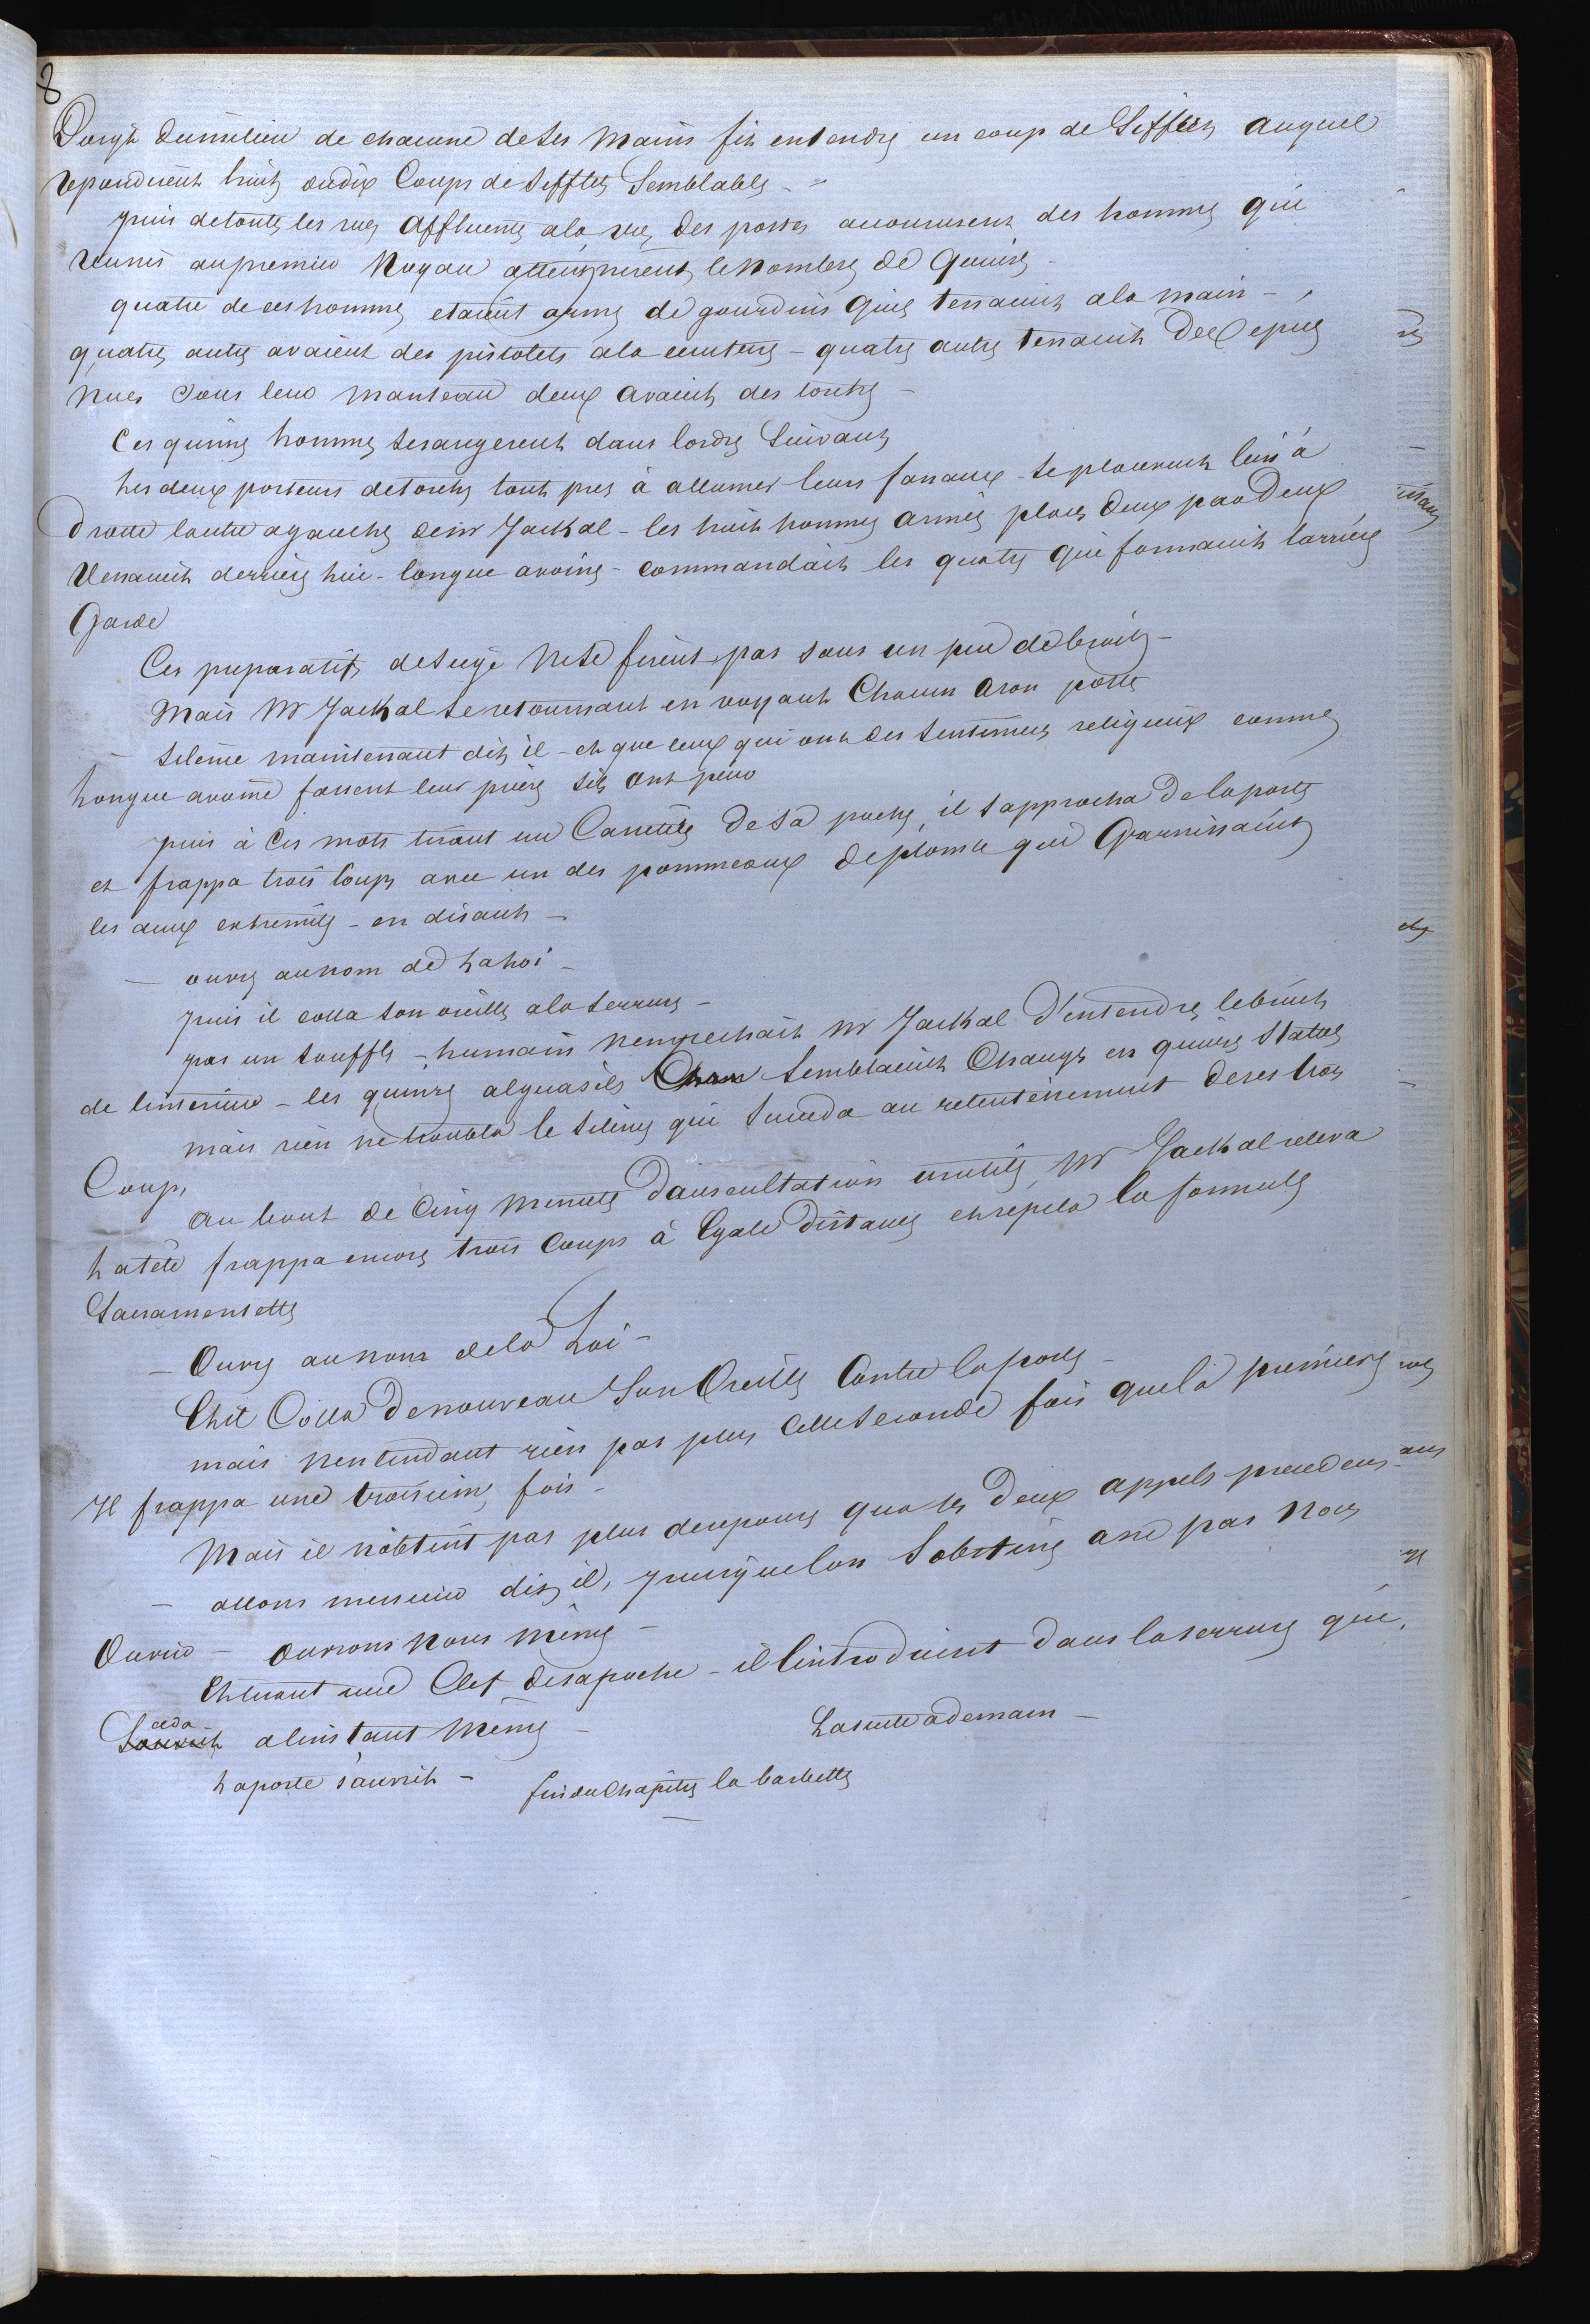 8
Doigt du milieu de chacune de ses mains fit entendre un coup de Sifflet auquel
repondirent huit ou dix Coups de sifflets Semblables -
puis de toutes les rues Affluentes a la rue des postes accoururent des hommes qui
reunis au premier Noyau atteignirent le Nombre de Quinze -
quatre de ces hommes etaient armes de gourdins quils tenaient a la main -
quatre autres avaient des pistolets a la ceinture - quatre autres tenaient des epees
Nues sous leur manteau deux avaient des torches -
Ces quinze hommes se rangerent dans lordre Suivant
Les deux porteurs de torches tout pres à allumer leurs fanaux se placerent lun à
Droite lautre a gauche de mr Jackal - les huit hommes armés placés deux par Deux
Venaient derriere lui - longue avoine - commandait les quatre qui formaient larriere
Garde
Ces preparatifs de siege Ne se firent pas sans un peu de bruit -
Mais Mr Jackal se retournant en voyant Chacun a son poste
- silence maintenant dit il - et que ceux qui ont des sentiments religieux comme
Longue avoine fassent leur priere sils ont peur
puis à ces mots tirant un Casse tete de sa poche, il sapprocha de la porte
et frappa trois Coups avec un des pommeaux de plomb qui Garnissaient
les deux extremites - en disant -
- ouvrez au nom de La Loi -
puis il colla son oreille a la serrure -
pas un souffle - humain nempechait Mr Jackal d'entendre le bruit
de linterieur - les quinze alguasils Semblaient Changes en quinze Statues
mais rien ne troubla le silence qui succeda au retentissement de ses trois
Coups
Au bout de Cinq Minutes Dauscultation inutile, Mr Jackal releva
La tête frappa encore trois Coups à Egale Distance et repeta la formule
Sacramentelle
- Ouvrez au nom de la Loi -
Et il Colla De nouveau Son Oreille Contre la porte -
mais nentendant rien pas plus cette seconde fois que la premiere
Il frappa une troisieme fois -
Mais il nobtint pas plus de reponse qua ses Deux appels precedens
- allons messieurs dit il, puisque lon Sobstine a ne pas nous
Ouvrir - ouvrons Nous même -
Et tirant une Clef de sa poche - il lintroduisit dans la serrure qui
Souvrit ceda a linstant même -
La suite a demain -
La porte s'ouvrit -
fin du Chapitre la barbette